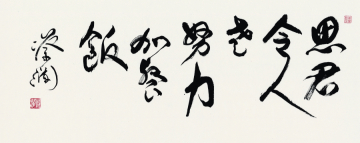 思君
令人
老
努力
加餐
飯